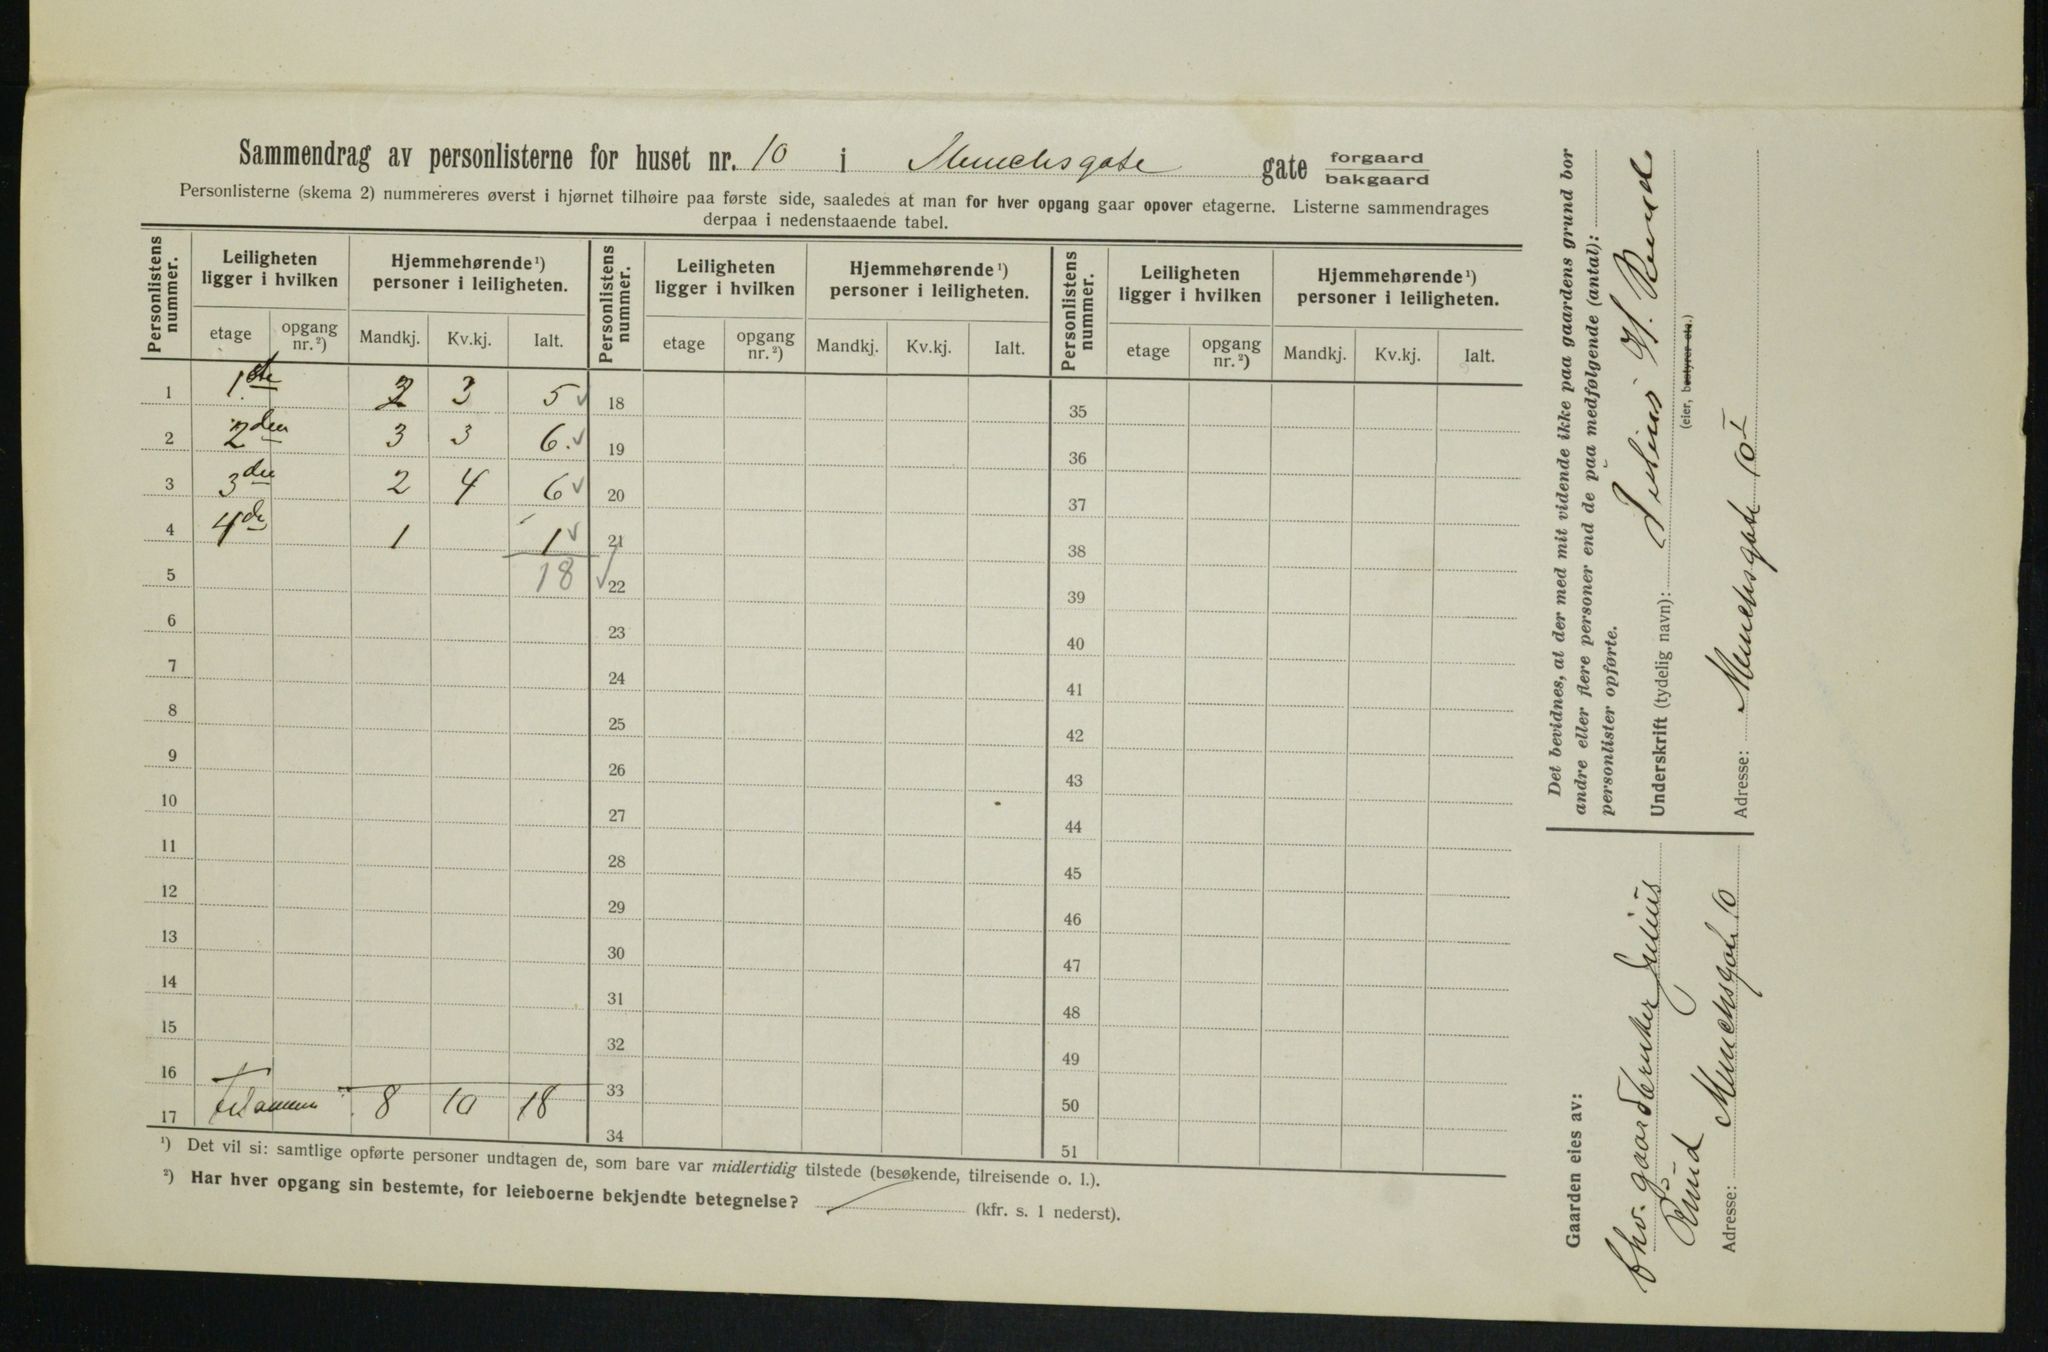 Sammendrag av personlisterne for huset nr. 10 i Munchsgate gate forgaard bakgaard
Personlisterne (skema 2) nummereres øverst i hjørnet tilhøire paa første side, saaledes at man for hver opgang gaar opover etagerne. Listerne sammendrages
derpaa i nedenstaaende tabel.
Personlistens nummer. Leiligheten ligger i hvilken Hjemmehørende ¹) personer i leiligheten. Personlistens nummer. Leiligheten ligger i hvilken Hjemmehørende ¹) personer i leiligheten. Personlistens nummer. Leiligheten ligger i hvilken Hjemmehørende ¹) personer i leiligheten.
etage opgang nr. ²) Mandkj. Kv.kj. Ialt. etage opgang nr. ²) Mandkj. Kv.kj. Ialt. etage opgang nr. ²) Mandkj. Kv.kj. Ialt.
1 1ste 2 3 5 ✓ 18 35
2 2den 3 3 6. ✓ 19 36
3 3die 2 4 6 ✓ 20 37
4 4de 1 1 ✓ 21 38
5 18 ✓ 22 39
6 23 40
7 24 41
8 25 42
9 26 43
10 27 44
11 28 45
12 29 46
13 30 47
14 31 48
15 32 49
16 33 50
17 tilsammen 8 10 18 34 51
¹) Det vil si: samtlige opførte personer undtagen de, som bare var midlertidig tilstede (besøkende, tilreisende o. l.).
²) Har hver opgang sin bestemte, for leieboerne bekjendte betegnelse? (kfr. s. 1 nederst).
Det bevidnes, at der med mit vidende ikke paa gaardens grund bor
andre eller flere personer end de paa medfølgende (antal):
personlister opførte.
Underskrift (tydelig navn): Julius H. Ruud
(eier, bestyrer etc.)
Adresse: Munchsgate 10 I
Gaarden eies av:
fhv. gaardbruker Julius
Ruud
Adresse: Munchsgate 10